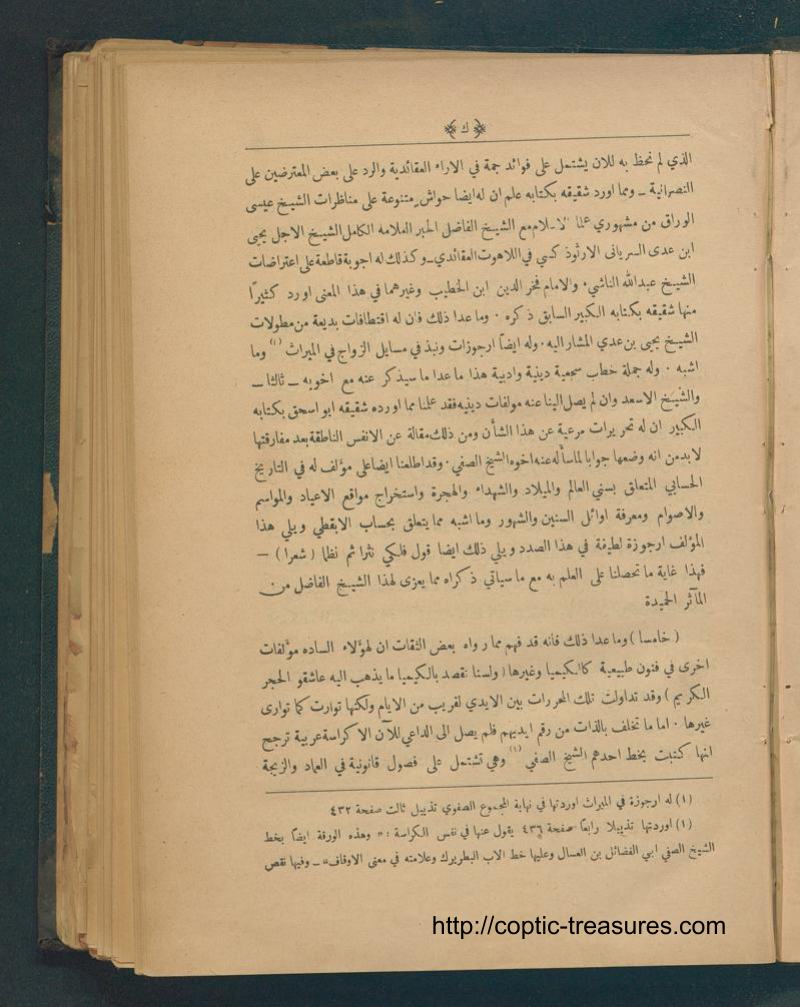 ﴿ ك ﴾
الذي لم نحظ به للان يشتمل على فوائد جمة في الاراء العقائدية والرد على بعض المعترضين على
النصرانية ــ ومما اورد شقيقه بكتابه علم ان له ايضا حواش متنوعة على مناظرات الشيخ عيسى
الوراق من مشهوري علما الاسلام مع الشيخ الفاضل الحبر العلامه الكامل الشيخ الاجل يحيى
ابن عدى السريانى الارثوذكسي في اللاهوت العقائدي ــ وكذلك له اجوبة قاطعة على اعتراضات
الشيخ عبدالله الناشيء والامام فخر الدين ابن الخطيب وغيرهما في هذا المعنى اورد كثيرًا
منها شقيقه بكتابه الكبير السابق ذكره ٠ وما عدا ذلك فان له اقتطافات بديعة من مطولات
الشيخ يحيى بن عدي المشار اليه ٠ وله ايضًا ارجوزات ونبذ في مسايل الزواج في الميراث (١) وما
اشبه ٠ وله جملة خطب سمعية دينية وادبية هذا ما عدا ما سيذكر عنه مع اخويه ــ ثالثا ــ
والشيخ الاسعد وان لم يصل الينا عنه مولفات دينيه فقد علمنا مما اورده شقيقه ابو اسحق بكتابه
الكبير ان له تحريرات مرعية عن هذا الشأن ومن ذلك مقالة عن الانفس الناطقة بعد مفارقتها
لابد من انه وضعها جوابا لما سأله عنه اخوه الشيخ الصفي ٠ وقد اطلعنا ايضا على مؤلف له في التاريخ
الحسابي المتعلق بسني العالم والميلاد والشهداء والهجرة واستخراج مواقع الاعياد والمواسم
والاصوام ومعرفة اوائل السنين والشهور وما اشبه مما يتعلق بحساب الابقطي ويلي هذا
المؤلف ارجوزة لطيفة في هذا الصدد ويلي ذلك ايضا قول فلكي نثرا ثم نظما ( شعرا ) ــ
فهذا غاية ما تحصلنا على العلم به مع ما سياتي ذكراه مما يعزى لهذا الشيخ الفاضل من
المآثر الحميدة
( خامسا ) وما عدا ذلك فانه قد فهم مما رواه بعض الثقات ان لهؤلاء الساده مؤلفات
اخرى في فنون طبيعية كالكيميا وغيرها ( ولسنا نقصد بالكيميا ما يذهب اليه عاشقو الحجر
الكريم ) وقد تداولت تلك المحررات بين الايدي لقريب من الايام ولكنها توارت كما توارى
غيرها ٠ اما ما تخلف بالذات من رقم ايديهم فلم يصل الى الداعي للآن الا كراسة عربية ترجح
انها كتبت بخط احدهم الشيخ الصفي (١) وهي تشتمل على فصول قانونية في العماد والزيجة
(١) له ارجوزة في الميراث اوردتها في نهاية المجموع الصفوي تذييل ثالت صفحة ٤٣٢
(١) اوردتها تذييلا رابعًا صفحة ٤٣٦ يقول عنها في نفس الكراسة : « وهذه الورقة ايضًا بخط
الشيخ الصفي ابي الفضائل بن العسال وعليها خط الاب البطريرك وعلامته في معنى الاوقاف » ــ وفيها نقص
http://coptic-treasures.com